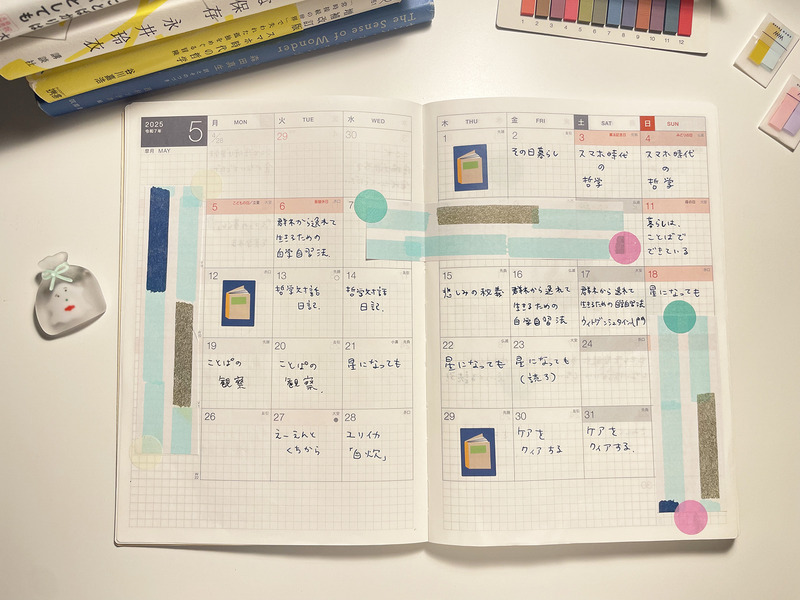 The Sense of Wonder
永井玲衣
スマホ時代の哲学
谷川嘉浩
1 2 3 4 5 6 7 8 9 10 11 12
2025
令和7年
5
皐月 MAY
月 MON
火 TUE
水 WED
木 THU
金 FRI
土 SAT
日 SUN
29
30
1
2
その日暮らし
3
スマホ時代
の
哲学
4
スマホ時代
の
哲学
5
こどもの日
6
振替休日
群れから逸れて
生きるための
自学自習法
7
11
暮らしは、
ことばで
できている
12
13
哲学対話
日記.
14
哲学対話
日記.
15
悲しみの秘義
16
群れから逸れて
生きるための
自学自習法
17
群れから逸れて
生きるための自学自習法
ウィトゲンシュタイン入門
18
星になっても
19
ことばの
観察
20
ことばの
観察.
21
星になっても
22
星になっても
23
星になっても
(読了)
24
26
27
えーえんと
くちから
28
ユリイカ
「自炊」
29
30
ケアを
クィアする
31
ケアを
クィアする.